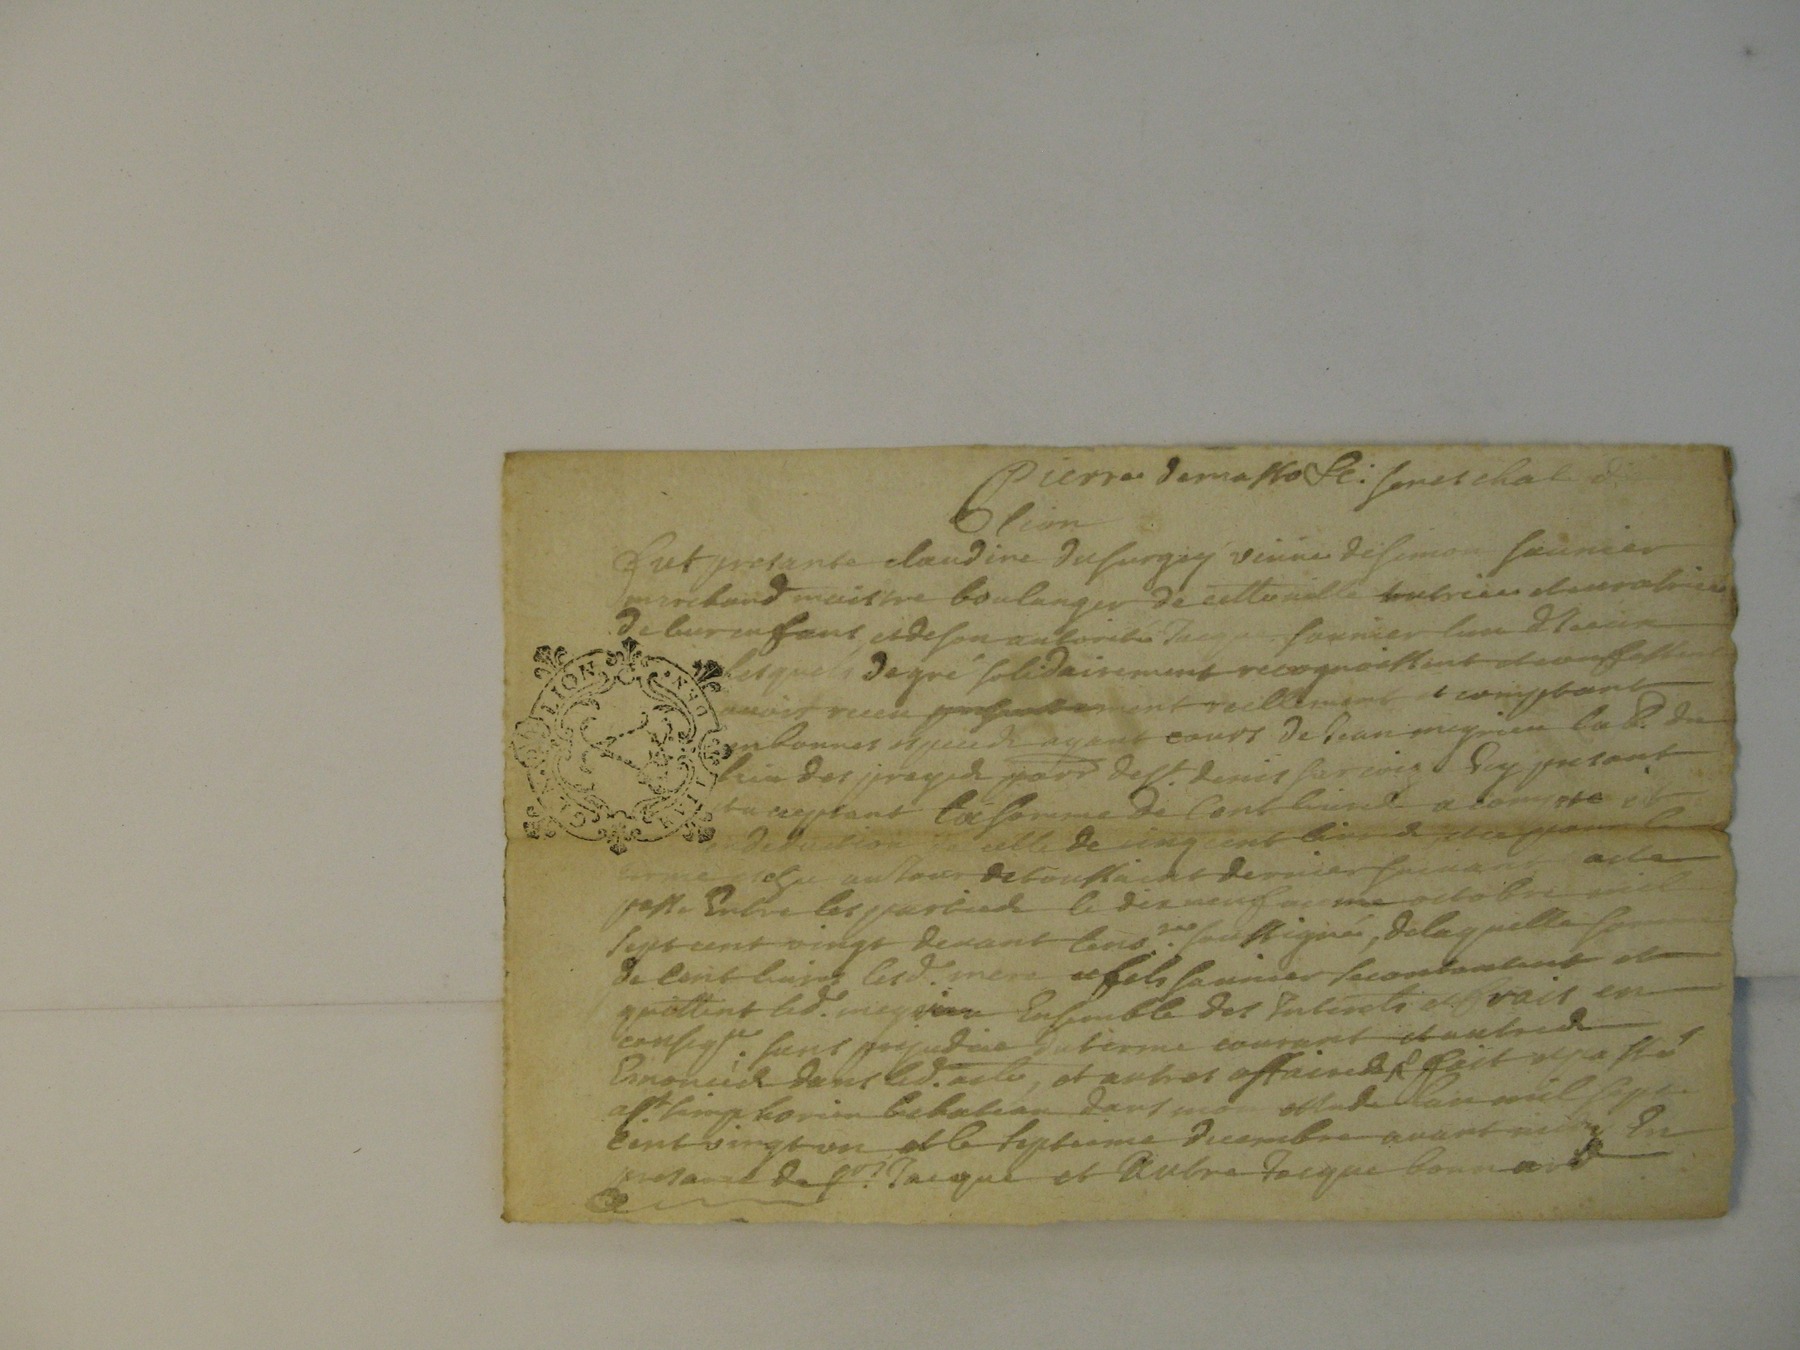 Pierre demasso Sei: Seneschal d
Lion
Fut presante claudine dusurgey veuve de simon saunier
marchand maistre boulanger de cette ville tutrice et curatrice
de leur enfans, et de son autorité Jacque saunier lun d'Iceux
Lesquels de gré solidairement recognoissent et confessent
avoir receu presentement reellement et comptant
en bonnes espiece ayant cours de Jean
des par de St. denis Icy presant
et acceptant la somme de Cent livres a compte et
deduction de celle de cinq cent livres, et ce pour le
terme au Jour de toussaint dernier suivant acte
passé Entre les parties le dix neufvieme octobre mil
sept cent vingt devant le nore. soussigné, de laquelle somme
de Cent livres lesd. mere et fils saunier se contentent et
quittent led. Ensemble des Interets et frais en
conseqce. sans prejudice du terme courant et autres
Enoncés dans led. acte, et autres affaires fait et passé
a St. simphorien le chateau dans mon estude Lan mil sept
cent vingt un et le septieme decembre avant midy En
presance de Sr. Jacque et Autre Jacque bonnard